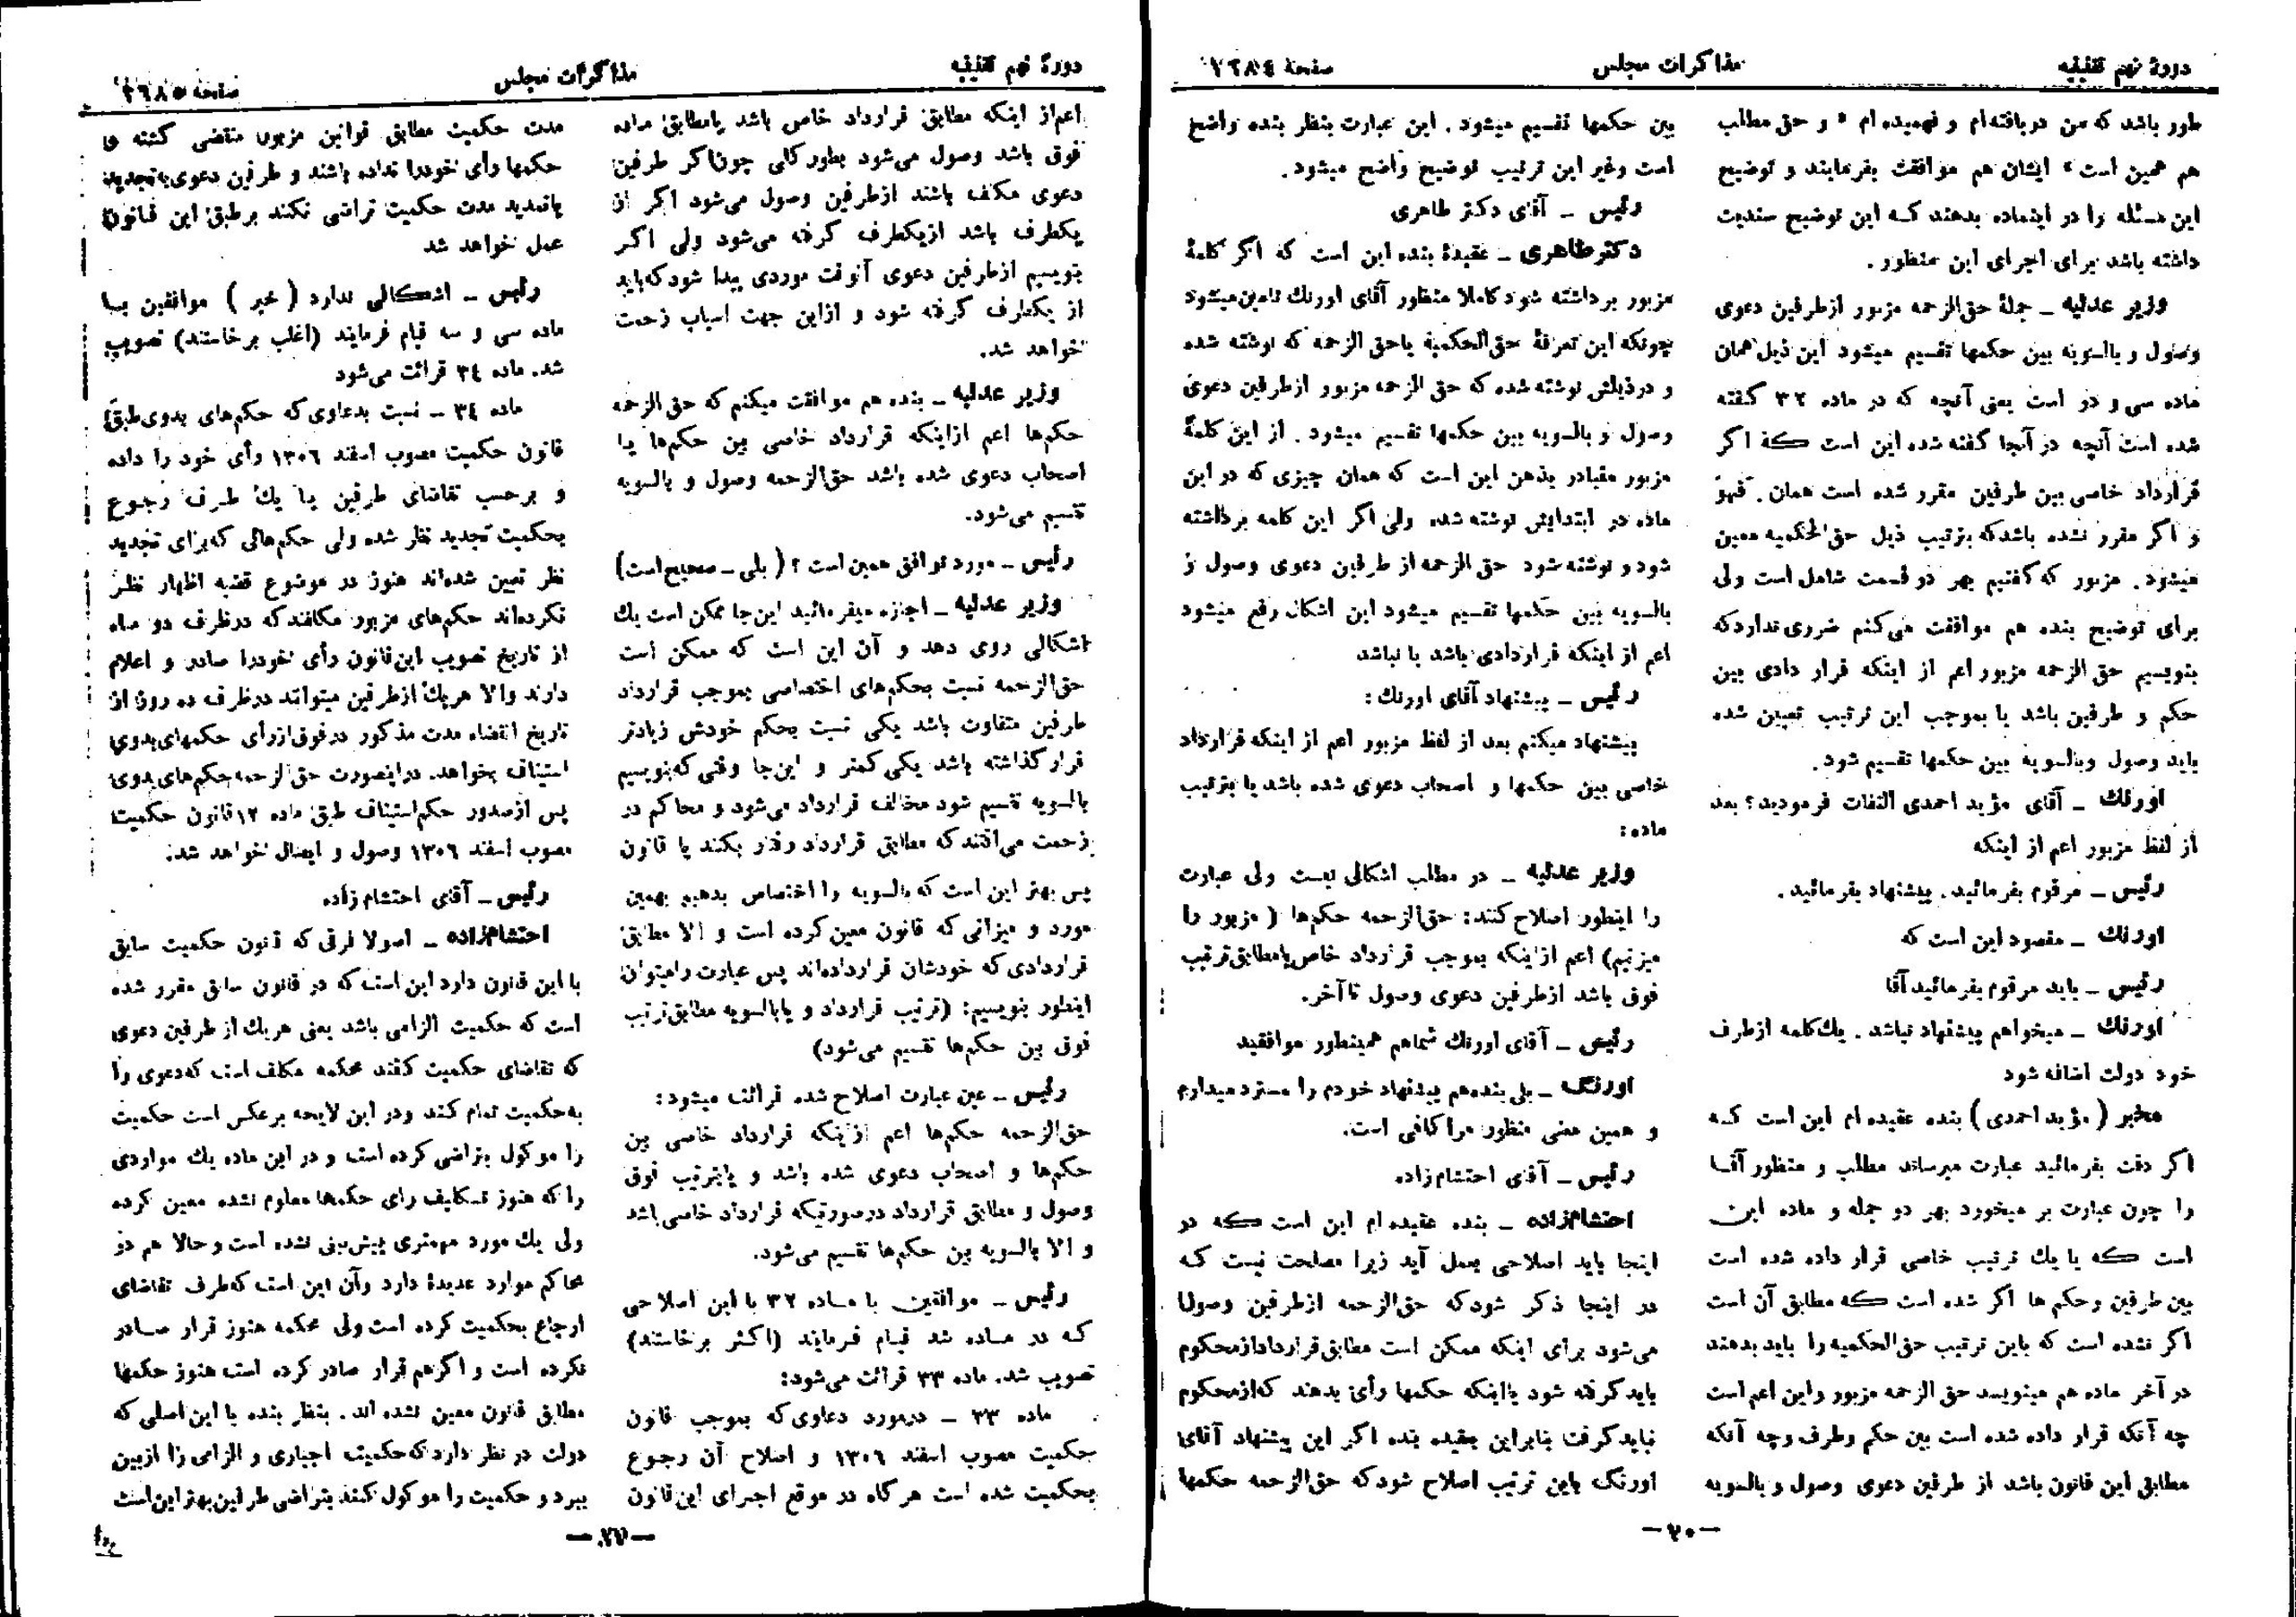 دورهٔ نهم تقنینیه
مذاکرات مجلس
صفحهٔ ۲۲۸۴
طور باشد که من دریافته‌ام و فهمیده ام « و حق مطلب
هم همین است » ایشان هم موافقت بفرمایند و توضیح
این مسئله را در اینماده بدهند کـه این توضیح سندیت
داشته باشد برای اجرای این منظور .
وزیر عدلیه ـ جملهٔ حق‌الزحمه مزبور ازطرفین دعوی
وصول و بالسویه بین حکمها تقسیم میشود این ذیل همان
ماده سی و دو است یعنی آنچه که در ماده ۳۲ گفته
شده است آنچه در آنجا گفته شده این است که اگر
قرارداد خاصی بین طرفین مقرر شده است همان . فهو
و اگر مقرر نشده باشد که بترتیب ذیل حق‌الحکمیه معین
میشود . مزبور که گفتیم بهر دو قسمت شامل است ولی
برای توضیح بنده هم موافقت می‌کنم ضرری ندارد که
بنویسیم حق الزحمه مزبور اعم از اینکه قرار دادی بین
حکم و طرفین باشد یا بموجب این ترتیب تعیین شده
باید وصول وبالسویه بین حکمها تقسیم شود .
اورنگ ـ آقای مؤید احمدی التفات فرمودید ؟ بعد
از لفظ مزبور اعم از اینکه
رئیس ـ مرقوم بفرمائید . پیشنهاد بفرمائید .
اورنگ ـ مقصود این است که
رئیس ـ باید مرقوم بفرمائید آقا
اورنگ ـ میخواهم پیشنهاد نباشد . یك کلمه ازطرف
خود دولت اضافه شود
مخبر ( مؤید احمدی ) بنده عقیده ام این است کـه
اگر دقت بفرمائید عبارت میرساند مطلب و منظور آقـا
را چون عبارت بر میخورد بهر دو جمله و ماده این
است که یا یك ترتیب خاصی قرار داده شده است
بین طرفین وحکم ها اگر شده است که مطابق آن است
اگر نشده است که باین ترتیب حق‌الحکمیه را باید بدهند
در آخر ماده هم مینویسد حق الزحمه مزبور و این اعم است
چه آنکه قرار داده شده است بین حکم وطرف وچه آنکه
مطابق این قانون باشد از طرفین دعوی وصول و بالسویه
بین حکمها تقسیم میشود . این عبارت بنظر بنده واضح
است وغیر این ترتیب توضیح واضح میشود .
رئیس ـ آقای دکتر طاهری
دکتر طاهری ـ عقیدهٔ بنده این است که اگر کلمهٔ
مزبور برداشته شود کاملا منظور آقای اورنك تامین میشود
چونکه این تعرفهٔ حق‌الحکمیهٔ یاحق الزحمه که نوشته شده
و درذیلش نوشته شده که حق الزحمه مزبور ازطرفین دعوی
وصول و بالسویه بین حکمها تقسیم میشود . از این کلمهٔ
مزبور متبادر بذهن این است که همان چیزی که در این
ماده در ابتدایش نوشته شده ولی اگر این کلمه برداشته
شود و نوشته شود حق الزحمه از طرفین دعوی وصول و
بالسویه بین حکمها تقسیم میشود این اشکال رفع میشود
اعم از اینکه قراردادی باشد یا نباشد
رئیس ـ پیشنهاد آقای اورنك :
پیشنهاد میکنم بعد از لفظ مزبور اعم از اینکه قرارداد
خاصی بین حکمها و اصحاب دعوی شده باشد یا بترتیب
ماده :
وزیر عدلیه ـ در مطلب اشکالی نیست ولی عبارت
را اینطور اصلاح کنند : حق‌الزحمه حکم‌ها ( مزبور را
میزنیم ) اعم ازاینکه بموجب قرارداد خاص یامطابق ترتیب
فوق باشد ازطرفین دعوی وصول تاآخر .
رئیس ـ آقای اورنك شماهم همینطور موافقید
اورنگ ـ بلی بنده‌هم پیشنهاد خودم را مسترد میدارم
و همین معنی منظور مرا کافی است .
رئیس ـ آقای احتشام زاده
احتشام‌زاده ـ بنده عقیده ام این است که در
اینجا باید اصلاحی بعمل آید زیرا مصلحت نیست که
در اینجا ذکر شود که حق‌الزحمه ازطرفین وصول
می‌شود برای اینکه ممکن است مطابق قرارداد ازمحکوم
باید گرفته شود یااینکه حکمها رأی بدهند که ازمحکوم
نباید گرفت بنابراین بعقیده بنده اگر این پیشنهاد آقای
اورنگ باین ترتیب اصلاح شود که حق‌الزحمه حکمها
ـ ۲۰ ـ
دورهٔ نهم تقنینیه
مذاکرات مجلس
صفحه ۲۲۸۵
اعم‌از اینکه مطابق قرارداد خاص باشد یامطابق ماده
فوق باشد وصول می‌شود بطور کلی چون‌اگر طرفین
دعوی مکلف باشند ازطرفین وصول می‌شود اگر از
یکطرف باشد ازیکطرف گرفته می‌شود ولی اگر
بنویسیم ازطرفین دعوی آنوقت موردی پیدا شود که باید
از یکطرف گرفته شود و ازاین جهت اسباب زحمت
خواهد شد.
وزیر عدلیه ـ بنده هم موافقت میکنم که حق‌الزحمه
حکم‌ها اعم ازاینکه قرارداد خاصی بین حکم‌ها یا
اصحاب دعوی شده باشد حق‌الزحمه وصول و بالسویه
تقسیم می‌شود.
رئیس ـ مورد توافق همین است ؟ ( بلی ـ صحیح است )
وزیر عدلیه ـ اجازه میفرمائید این‌جا ممکن است یك
اشکالی روی دهد و آن این است که ممکن است
حق‌الزحمه نسبت بحکم‌های اختصاصی بموجب قرارداد
طرفین متفاوت باشد یکی نسبت بحکم خودش زیادتر
قرار گذاشته باشد یکی کمتر و این‌جا وقتی که بنویسیم
بالسویه تقسیم شود مخالف قرارداد می‌شود و محاکم در
زحمت می‌افتند که مطابق قرارداد رفتار بکنند یا قانون
پس بهتر این است که بالسویه را اختصاص بدهیم بهمین
مورد و میزانی که قانون معین کرده است و الا مطابق
قراردادی که خودشان قرارداده‌اند پس عبارت رامیتوان
اینطور بنویسیم: (ترتیب قرارداد و یابالسویه مطابق ترتیب
فوق بین حکم‌ها تقسیم می‌شود)
رئیس ـ عین عبارت اصلاح شده قرائت میشود :
حق‌الزحمه حکم‌ها اعم ازاینکه قرارداد خاصی بین
حکم‌ها و اصحاب دعوی شده باشد و یابترتیب فوق
وصول و مطابق قرارداد درصورتیکه قرارداد خاصی باشد
و الا بالسویه بین حکم‌ها تقسیم می‌شود.
رئیس ـ موافقین با مـاده ۳۲ با این اصلاحی
کـه در مـاده شد قیام فرمایند (اکثر برخاستند)
تصویب شد. ماده ۳۳ قرائت می‌شود:
ماده ۳۳ ـ درمورد دعاوی که بموجب قانون
حکمیت مصوب اسفند ۱۳۰۶ و اصلاح آن رجوع
بحکمیت شده است هرگاه در موقع اجرای این قانون
مدت حکمیت مطابق قوانین مزبور منقضی گشته و
حکمها رأی خودرا نداده باشند و طرفین دعوی به‌تجدید
یاتمدید مدت حکمیت تراضی نکنند برطبق این قانون
عمل نخواهد شد
رئیس ـ اشکالی ندارد ( خیر ) موافقین بـا
ماده سی و سه قیام فرمایند (اغلب برخاستند) تصویب
شد. ماده ۳۴ قرائت می‌شود
ماده ۳۴ ـ نسبت بدعاوی که حکم‌های بدوی طبق
قانون حکمیت مصوب اسفند ۱۳۰۶ رأی خود را داده
و برحسب تقاضای طرفین یا یك طرف رجوع
بحکمیت تجدید نظر شده ولی حکم‌هائی که برای تجدید
نظر تعیین شده‌اند هنوز در موضوع قضیه اظهار نظر
نکرده‌اند حکم‌های مزبور مکلفند که درظرف دو ماه
از تاریخ تصویب این قانون رأی خودرا صادر و اعلام
دارند والا هریك ازطرفین میتواند درظرف ده روز از
تاریخ انقضاء مدت مذکور درفوق ازرأی حکمهای بدوی
استیناف بخواهد. دراینصورت حق الزحمه حکم‌های بدوی
پس ازصدور حکم استیناف طبق ماده ۱۲ قانون حکمیت
مصوب اسفند ۱۳۰۶ وصول و ایصال خواهد شد.
رئیس ـ آقای احتشام زاده
احتشام‌زاده ـ اصولا فرقی که قانون حکمیت سابق
با این قانون دارد این است که در قانون سابق مقرر شده
است که حکمیت الزامی باشد یعنی هریك از طرفین دعوی
که تقاضای حکمیت کنند محکمه مکلف است که دعوی را
به‌حکمیت تمام کند ودر این لایحه برعکس است حکمیت
را موکول بتراضی کرده است و در این ماده یك مواردی
را که هنوز تکلیف رای حکمها معلوم نشده معین کرده
ولی یك مورد مهمتری پیش‌بینی نشده است و حالا هم در
محاکم موارد عدیدهٔ دارد وآن این است که طرف تقاضای
ارجاع بحکمیت کرده است ولی محکمه هنوز قرار صـادر
نکرده است و اگر هم قرار صادر کرده است هنوز حکمها
مطابق قانون معین نشده اند . بنظر بنده با این اصلی که
دولت در نظر دارد که حکمیت اجباری و الزامی را ازبین
ببرد و حکمیت را موکول کنند بتراضی طرفین بهتر این است